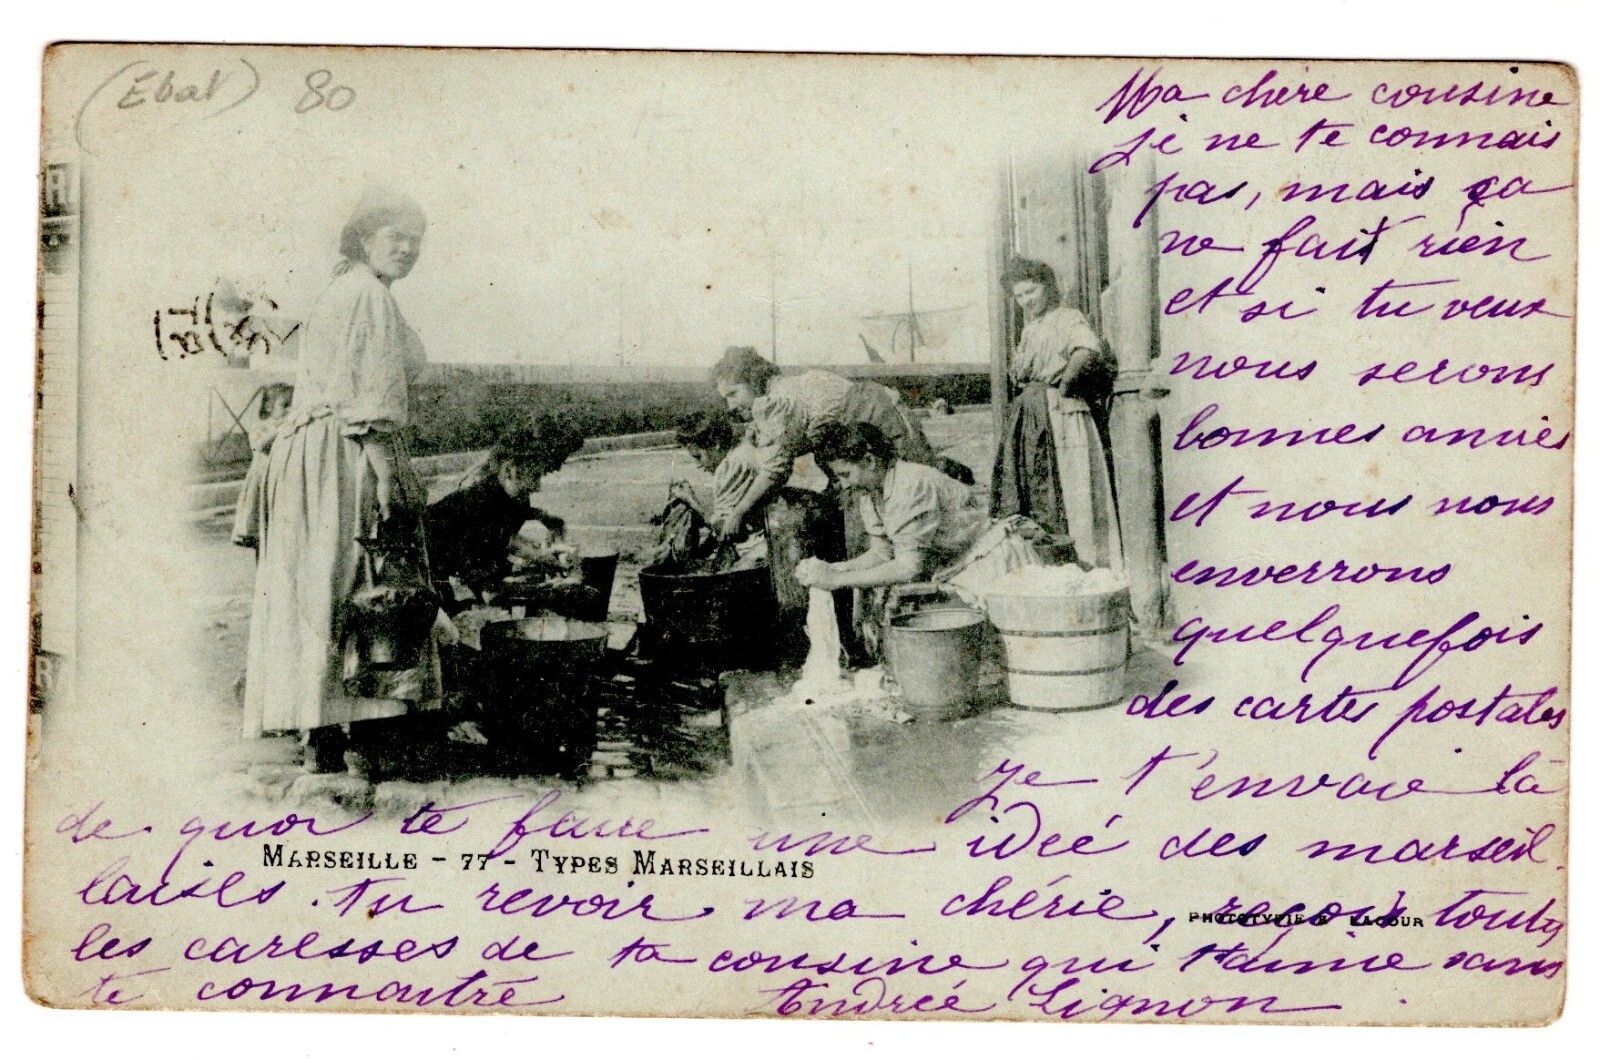 (Ebat) 80
Ma chère cousine
je ne te connais
pas, mais ça
ne fait rien
et si tu veux
nous serons
bonnes amies
et nous nous
enverrons
quelquefois
des cartes postales
Je t'envoie là
de quoi te faire une idée des marseil
MARSEILLE - 77 - TYPES MARSEILLAIS
laises. tu revoir ma chérie, reçois toutes
PHOTOTYPIE E LACOUR
les caresses de ta cousine qui t'aime sans
te connaître Andrée Lignon.